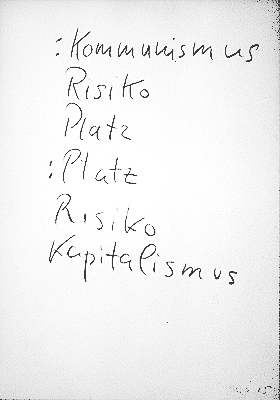 :Kommunismus
Risiko
Platz
:Platz
Risiko
Kapitalismus